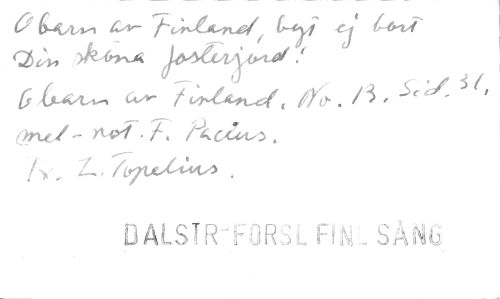 O barn av Finland, byt ej bort
Din sköna fosterjord!
O barn av Finland. No. 13. Sid. 31.
mel-not. F. Pacius.
Z. Topelius.
DALSTR-FORSL FINL SÅNG